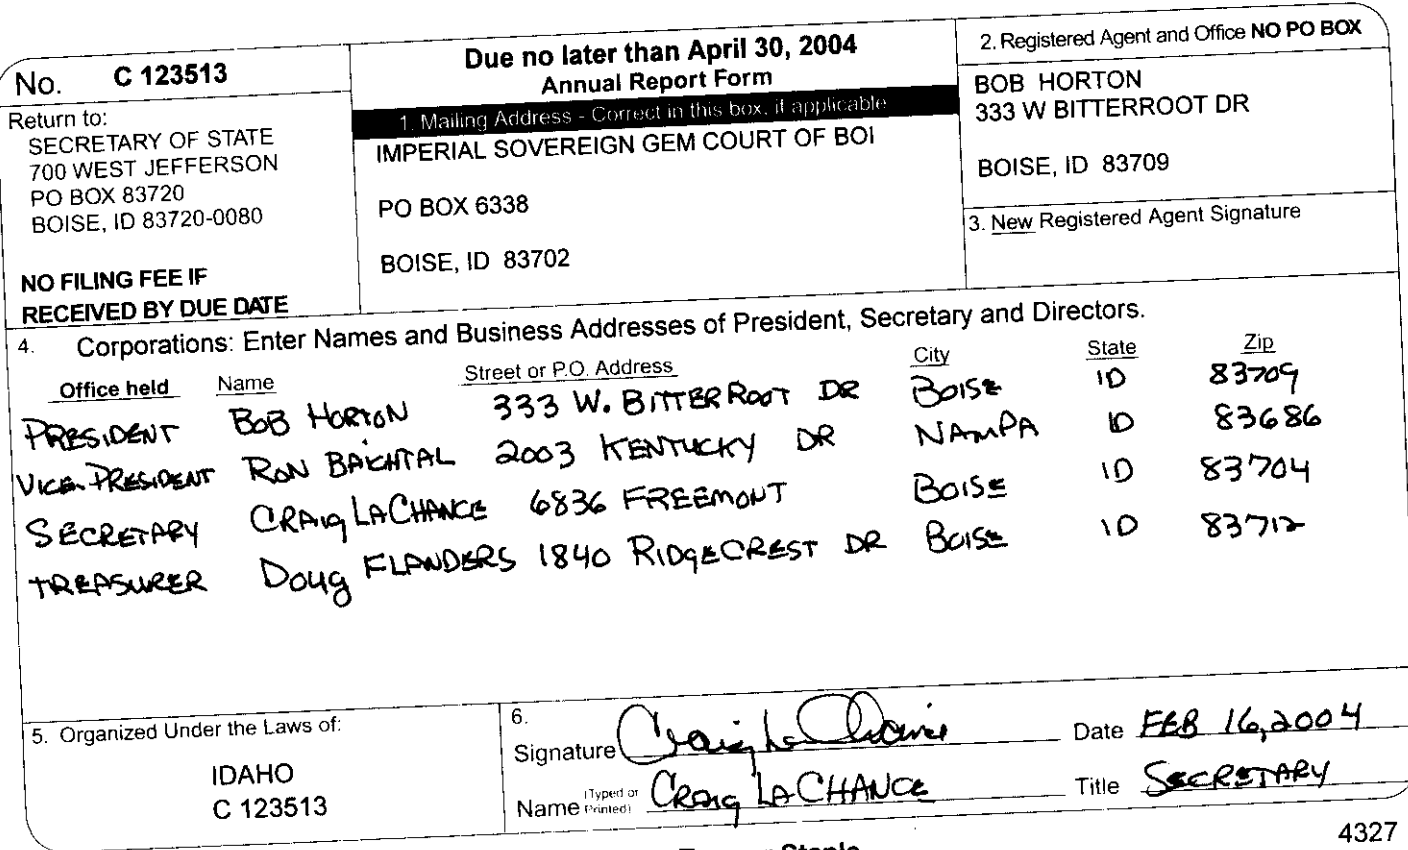 No. C 123513
Return to:
SECRETARY OF STATE
700 WEST JEFFERSON
PO BOX 83720
BOISE, ID 83720-0080
NO FILING FEE IF
RECEIVED BY DUE DATE
Due no later than April 30, 2004
Annual Report Form
1. Mailing Address - Correct in this box, if applicable
IMPERIAL SOVEREIGN GEM COURT OF BOI
PO BOX 6338
BOISE, ID 83702
2. Registered Agent and Office NO PO BOX
BOB HORTON
333 W BITTERROOT DR
BOISE, ID 83709
3. New Registered Agent Signature
4. Corporations: Enter Names and Business Addresses of President, Secretary and Directors.
Office held Name Street or P.O. Address City State Zip
PRESIDENT BOB HORTON 333 W. BITTERROOT DR BOISE ID 83709
VICE-PRESIDENT RON BAICHTAL 2003 KENTUCKY DR NAMPA ID 83686
SECRETARY CRAIG LACHANCE 6836 FREEMONT BOISE ID 83704
TREASURER DOUG FLANDERS 1840 RIDGECREST DR BOISE ID 83712
5. Organized Under the Laws of:
IDAHO
C 123513
6.
Signature Craig La Chance Date FEB 16, 2004
Name (Typed or Printed) CRAIG LACHANCE Title SECRETARY
4327